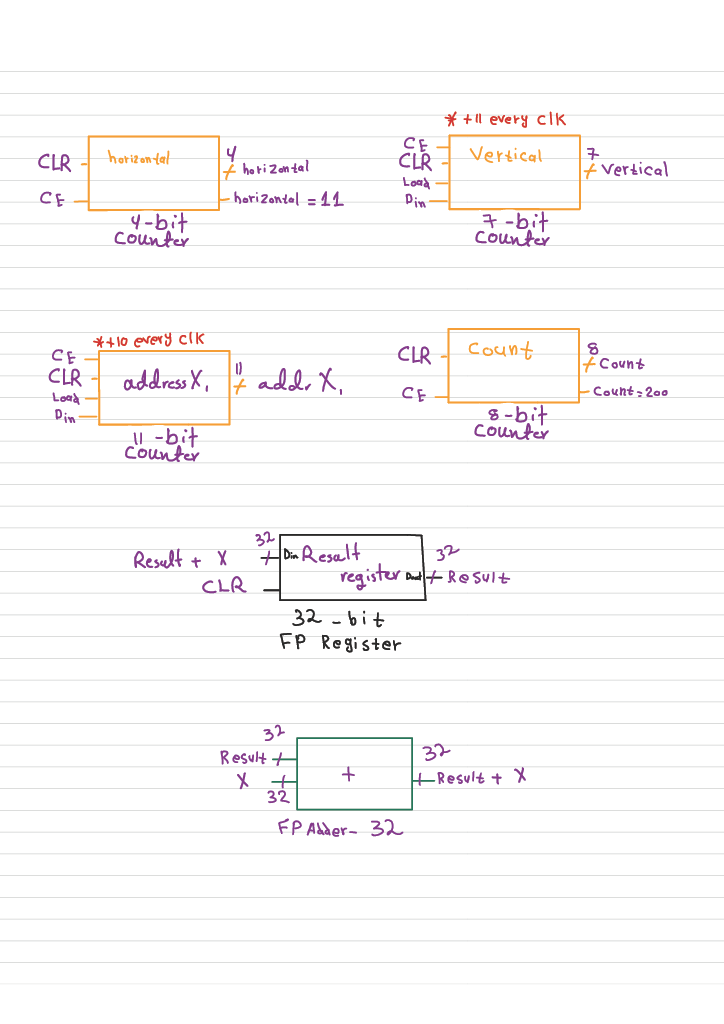 * +11 every clk
CLR
CE
horizontal
4
horizontal
horizontal = 11
4-bit
Counter
CE
CLR
Load
Din
Vertical
7
Vertical
7-bit
Counter
*+10 every clk
CE
CLR
Load
Din
address X₁
11
addr X₁
11-bit
Counter
CLR
CE
Count
8
Count
Count = 200
8-bit
Counter
Result + X
CLR
32
Din Result
register Dout
32
Result
32-bit
FP Register
Result
X
32
32
+
32
Result + X
FP Adder- 32